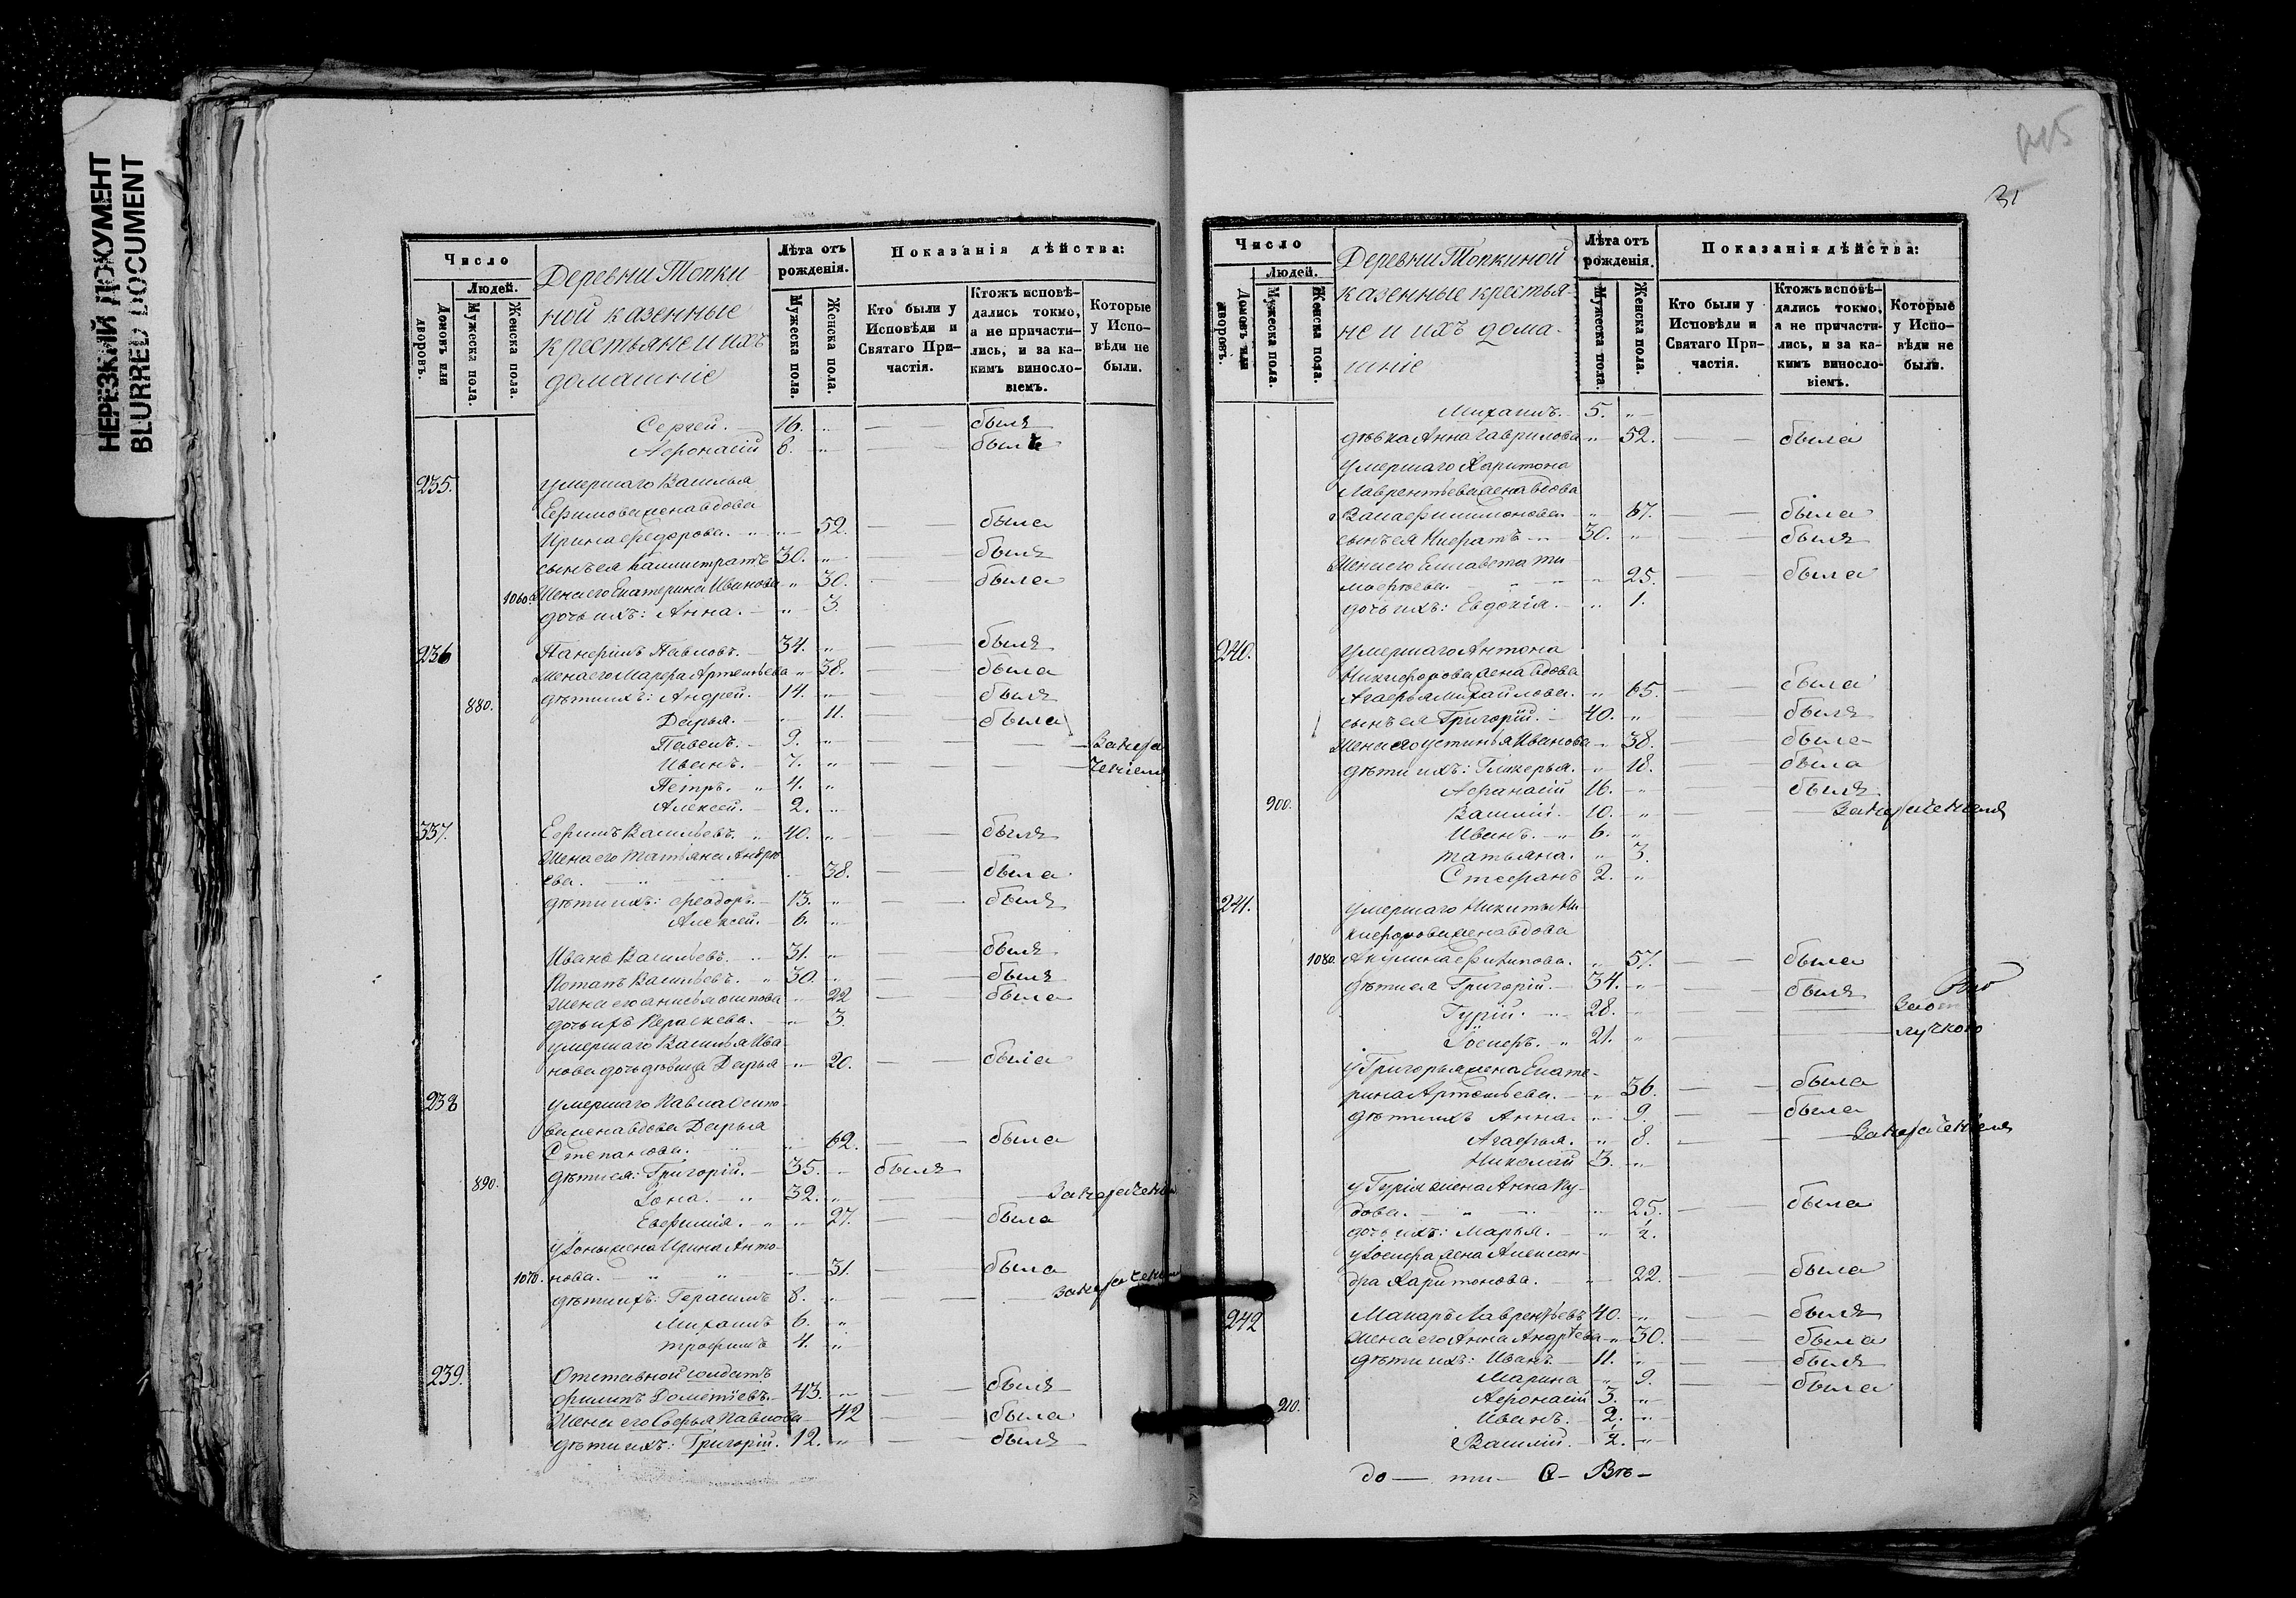 НЕРЕЗКИЙ ДОКУМЕНТ
BLURRED DOCUMENT
Число
Людей.
Домовъ или дворовъ.
Мужеска пола.
Женска пола.
Деревни Топки
ной казенные
крестьяне и ихъ
домашніе
Лѣта отъ рожденія.
Мужеска пола.
Женска пола.
Показанія дѣйства:
Кто были у Исповѣди и Святаго Причастія.
Ктожъ исповѣдались токмо, а не причастились, и за какимъ винословіемъ.
Которые у Исповѣди не были.
Сергей. 16. " былъ
Афонасій 6. " былъ
235. умершаго Василья
Ефимова жена вдова
Ирина Федорова. " 52. была
сынъ ея Калистратъ 30. " былъ
1060. Жена его Екатерина Иванова " 30. была
дочь ихъ: Анна. " 3.
236 Панфилъ Павловъ. 34. " былъ
Жена его Марфа Артемьева " 38. была
880. дѣти ихъ: Андрей. 14. " былъ
Дарья. " 11. была
Павелъ. 9. " За нера
Иванъ. 7. " чениемъ
Петръ. " 4. "
Алексей. 2. "
337. Ефимъ Васильевъ. " 40. " былъ
Жена его Татьяна Андре
ева. " 38. была
дѣти ихъ: Феодоръ. 13. " былъ
Алексей. 6. "
Иванъ Васильевъ. 31. " былъ
Потапъ Васильевъ. " 30. " былъ
Жена его Анисья Осипова " 22 была
дочь ихъ Параскева. " 3.
умершаго Василья Ива
нова дочь дѣвица Дарья " 20. была
238 умершаго Павла Осипо
ва жена вдова Дарья
Степанова. " 62. была
дѣти ея: Григорій. 35. " былъ
890. Іона. " 32. "
Евфимія. " 27. была
у Іоны жена Ирина Анто
1070. нова. " " 31. была
дѣти ихъ: Герасимъ 8. "
Михаилъ 6. "
Трофимъ 4. "
239. Отставной солдатъ
Филипъ Дометіевъ. 43. " былъ
Жена его Софья Павлова 42 была
дѣти ихъ: Григорій. 12. " былъ
31
Число
Людей.
Домовъ или дворовъ.
Мужеска пола.
Женска пола.
Деревни Топкиной
казенные крестья-
не и ихъ дома-
шніе
Лѣта отъ рожденія.
Мужеска пола.
Женска пола.
Показанія дѣйства:
Кто были у Исповѣди и Святаго Причастія.
Ктожъ исповѣдались токмо, а не причастились, и за какимъ винословіемъ.
Которые у Исповѣди не были.
Михаилъ. 5. "
дѣвка Анна Гаврилова " 52. была
умершаго Харитона
Лаврентьева жена вдова
67. была
сынъ ея Кирратъ 30. " былъ
Жена его Елисавета Ти
мофѣева. " 25. была
дочь ихъ: Евдокія. " 1.
240. умершаго Антона
Никифорова жена вдова
Агафья Михайлова. " 65. была
сынъ ея Григорій. 40. " былъ
Жена его Устинья Иванова " 38. была
дѣти ихъ: Гликерья. " 18. была
Афанасій 16. " былъ
900. Василій. 10. "
Иванъ. " 6. "
Татьяна. " 3.
Стефанъ 2. "
241. умершаго Никиты Ни
кифорова жена вдова
1080. Акулина Филипова. " 57. была
дѣти ея Григорій. 34. " былъ
Гурій. " 28. " За от
Іосифъ. " 21. " лучкою
у Григорья жена Екате-
рина Артемьева. " 36. была
дѣти ихъ Анна. " 9. была
Агафья. " 8.
Николай 3. "
у Гурія жена Анна Ку-
дова. " 25. была
дочь ихъ: Марья. " 1/2.
у Іосифа жена Алексан-
дра Харитонова. " 22. была
242 Макаръ Лаврентьевъ 40. " былъ
Жена его Анна Андреева " 30. была
дѣти ихъ: Иванъ. 11. " былъ
Марина " 9. была
Афонасій 3. "
910. Иванъ. 2. "
Василій. 1/2. "
до — ти —